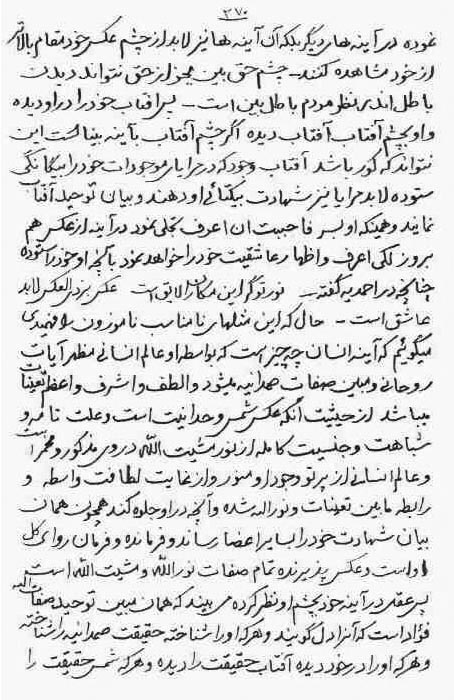 ۳۷۰
نموده در آینه های دیگر بلکه آن آینه ها نیز لابد از چشم عکس خود مقام بالاتر
از خود مشاهده کنند – چشم حق بین بجز از حق نتواند دیدن
باطل اندر نظر مردم باطل بین است – پس آفتاب خود را در او دیده
و او بچشم آفتاب آفتاب دیده اگر چشم آفتاب بآینه بینا است این
نتواند که کور باشد آفتاب وجود که در مرایای موجودات خود را بیگانگی
ستوده لابد مرایا نیز شهادت بیکتائی او دهند و بیان توحید آفتاب
نمایند و همینکه او بسر فاحببت ان اعرف تجلی نمود در آینه از عکس هم
بروز لکی اعرف و اظهار عاشقیت خود را خواهد نمود بآنچه او خود را ستوده
چنانچه در احمدیه گفته – نور تو گر این مکان لایق است عکس لابد
عاشق است – حال که این مثلهای نامناسب ناموزون را فهمیدی
میگوئیم که آینه انسان چه چیز است که بواسطه او عالم انسانی مظهر آیات
روحانی و مبین صفات صمدانیه میشود و الطف و اشرف و اعظم تعینات
میباشد از حیثیت آنکه عکس شمس وحدانیت است و علت تامه و
شباهت و جنسیت کامله از نور مشیت الله در وی مذکور و مخمر است
و عالم انسانی از پرتو وجود او منور و از غایت لطافت واسطه و
رابطه مابین تعینات و نور اله شده و آنچه در او جلوه کند همچون همان
بیان شهادت خود را بسایر اعضا رساند و فرمانده و فرمان روای کل
اوست و عکس پذیرنده تمام صفات نور الله و مشیت الله است
پس عقلی در آینه خود بچشم او نظر کرده می بیند که همان مبین توحید صفات الهیه
فؤاد است که آنرا دل گویند و هر که او را شناخته حقیقت صمدانیه را شناخته
و هر که او را در خود دیده آفتاب حقیقت را دیده و هر که شمس حقیقت را